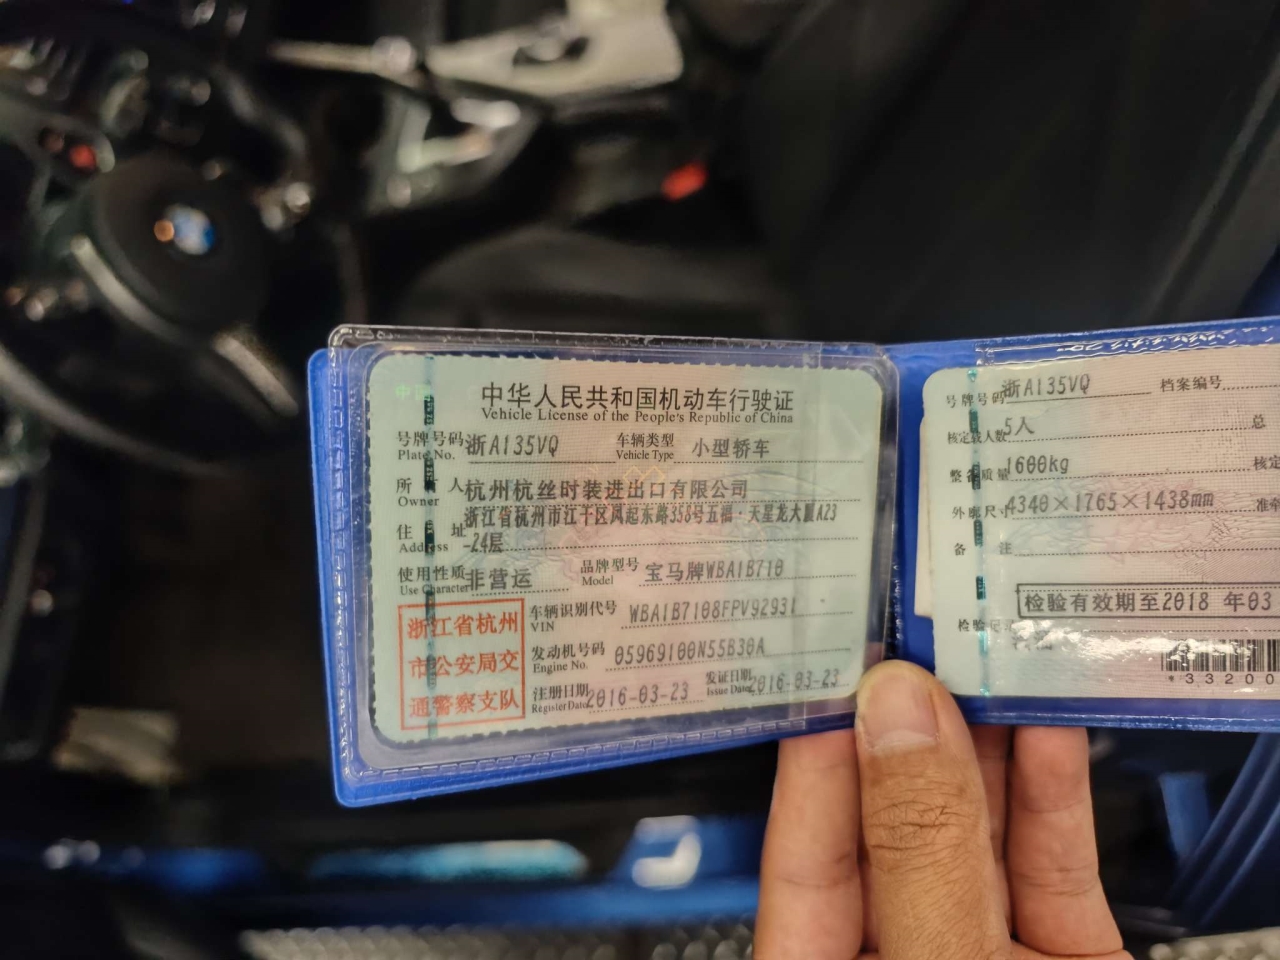 中华人民共和国机动车行驶证
Vehicle License of the People's Republic of China
号牌号码 浙A135VQ 车辆类型 小型轿车
Plate No. Vehicle Type
所有人 杭州杭丝时装进出口有限公司
Owner
住址 浙江省杭州市江干区凤起东路358号五福·天星龙大厦A23
Address -24层
使用性质 非营运 品牌型号 宝马牌WBA1B710
Use Character Model
浙江省杭州
市公安局交
通警察支队
车辆识别代号 WBA1B7108FPV92931
VIN
发动机号码 05969100N55B30A
Engine No.
注册日期 2016-03-23 发证日期 2016-03-23
Register Date Issue Date
号牌号码 浙A135VQ 档案编号
核定载人数 5人 总
整备质量 1600kg 核定
外廓尺寸 4340×1765×1438mm 准牵
备注
检验有效期至2018 年03
检验记
33200